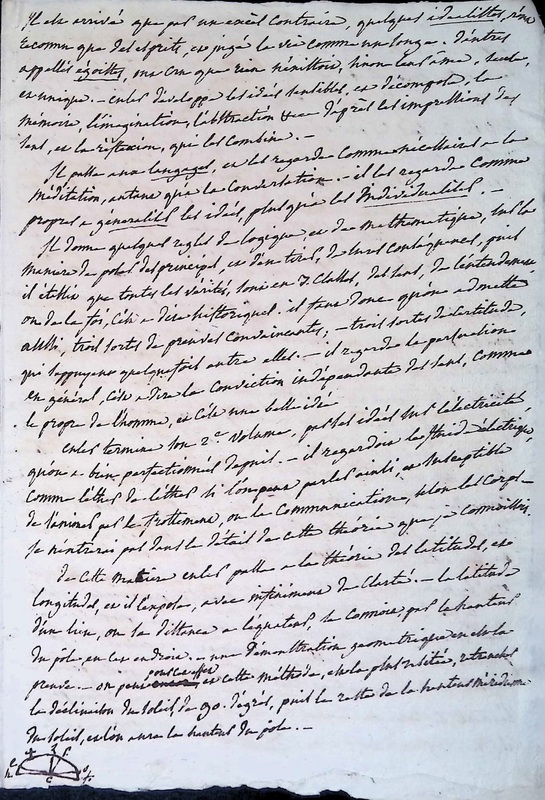 Il est arrivé que par un excès contraire, quelques idealistes, n'ont
reconnu que des esprits, et jugé la vie comme un songe. d'autres
appellés égoistes, ont cru que rien n'existoit, sinon leur âme, seule,
et unique. - euler développe les idées sensibles, et décompose, la
mémoire, l'imagination, l'abstraction &ca d'après les impressions des
sens, et la réflexion, qui les combine. -
Il passe aux langages, et les regarde comme nécessaires a la
méditation, autant qu'a la conversation. - il les regarde comme
propres a generaliser les idées, plus que les Individualités. -
Il donne quelques regles de logique et de mathématique, sur la
maniere de poser des principes, et d'en tirer, de leurs conséquences, puis
il établit que toutes les vérités, sont en 3. classes, des sens, de l'entendement
ou de la foi, c'est a dire historiques. il faut donc qu'on admette
aussi, trois sortes de preuves convaincantes, - trois sortes de certitudes,
qui s'appuyent quelquefois entre elles. - il regarde la persuasion
en général, c'est a dire la conviction indépendante des sens, comme
le propre de l'homme, et c'est une belle idée
euler termine son 2e volume, par les idées sur l'électricité
qu'on a bien perfectionnées depuis. - il regardoit le fluide électrique,
comme l'éther de l'éther si l'on peut parler ainsi, et susceptible
de s'animer par le frottement, ou la communication, selon les corps -
je n'entrerai pas dans le détail de cette théorie que je connois.
de cette matiere euler passe a la théorie des latitudes, et
longitudes, et il l'expose, avec infiniment de clarté. - la latitude
d'un lieu, ou sa distance a l'équateur, se connoit, par la hauteur
du pôle, en cet endroit. - une démonstration géometrique en est la
preuve. - on peut en cette méthode, est la plus usitée, retrancher
la déclinaison du soleil, de 90. dégrés, puis le reste de la hauteur méridienne
du soleil, et l'on aura la hauteur du pôle. -